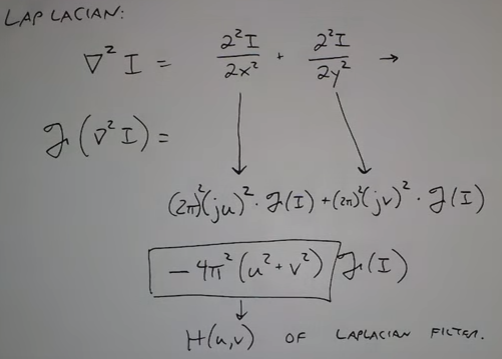 LAPLACIAN:
∇²I = ∂²I/∂x² + ∂²I/∂y² →
ℱ(∇²I) =
(2π)²(ju)² · ℱ(I) + (2π)²(jv)² · ℱ(I)
−4π²(u² + v²) ℱ(I)
H(u,v) OF LAPLACIAN FILTER.